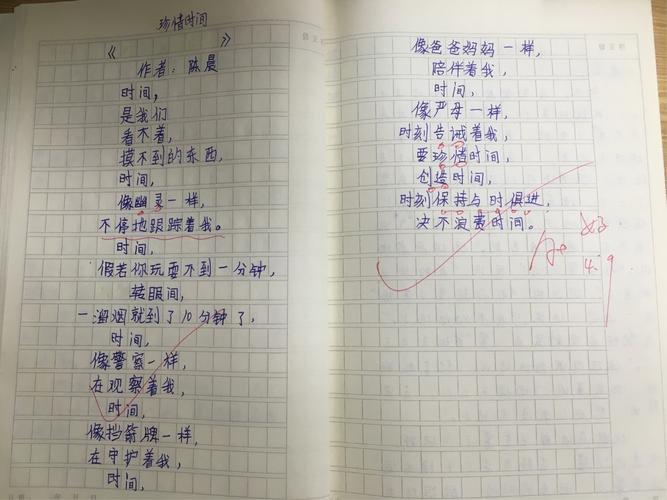 珍惜时间
《 》
作者：陈晨
时间，
是我们
看不着，
摸不到的东西，
时间，
像幽灵一样，
不停地跟踪着我。
时间，
假若你玩耍不到一分钟，
转眼间，
一溜烟就到了10分钟了，
时间，
像警察一样，
在观察着我，
时间，
像挡箭牌一样，
在守护着我，
时间，
像爸爸妈妈一样，
陪伴着我，
时间，
像严母一样，
时刻告诫着我，
要珍惜时间，
创造时间，
时刻保持与时俱进，
决不浪费时间。
好
4.9